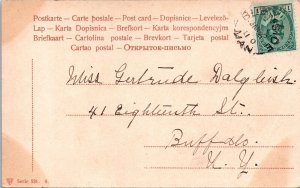 Postkarte - Carte postale - Post card - Dopisnice - Levelező-
Lap - Karta Dopisnica - Brefkort - Karta korespondencyjna
Briefkaart - Cartolina postale - Brevkort - Tarjeta postal
Cartao postal - Открытое-письмо
Miss Gertrude Dalgleish
41 Eighteenth St.
Buffalo.
N. Y.
Serie